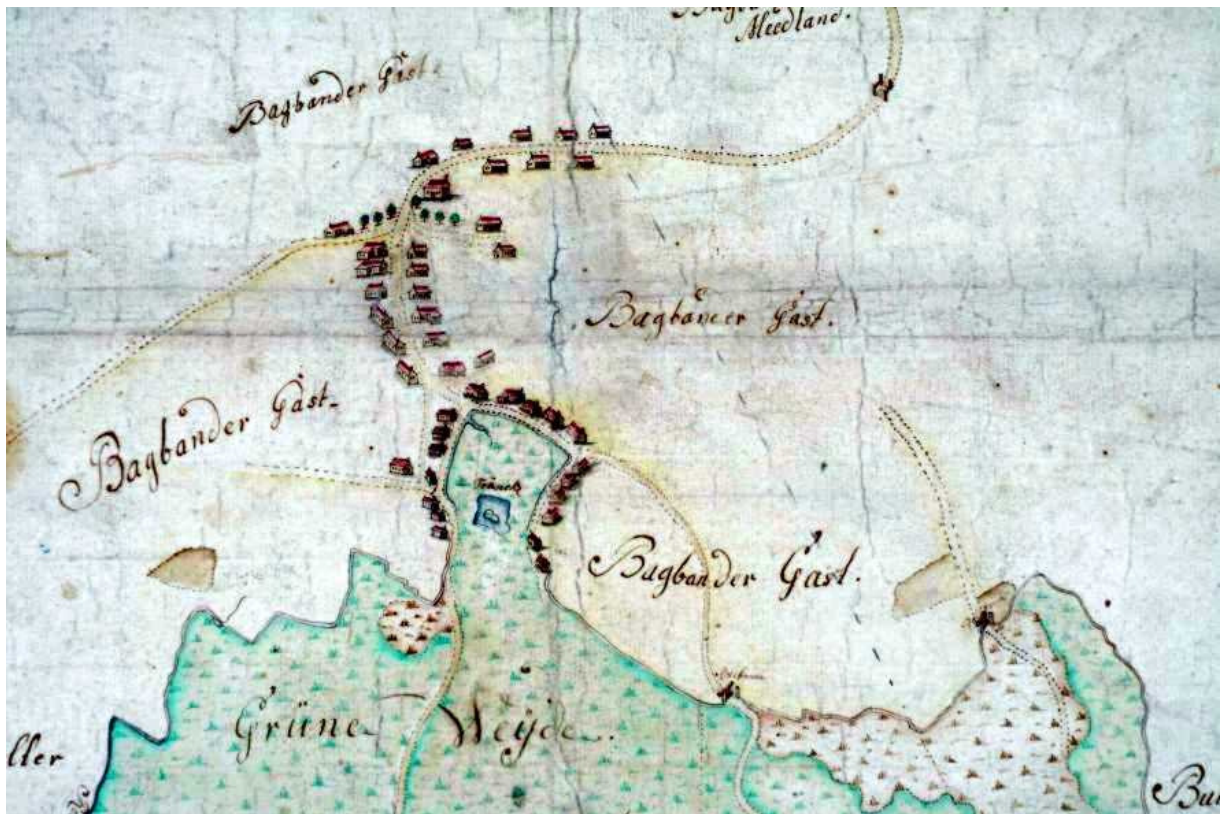 Meedland.
Bagbander Gast.
Bagbander Gast.
Bagbander Gast.
Bagbander Gast.
Grüne Weyde.
ller